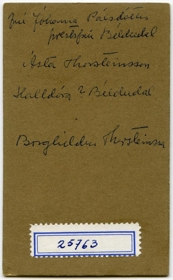 frú Jóhanna Pálsdóttir
prestsfrú Bíldudal
Ásta Thorsteinsson
Halldóra Bíldudal
Borghildur Thorsteinsson
25763